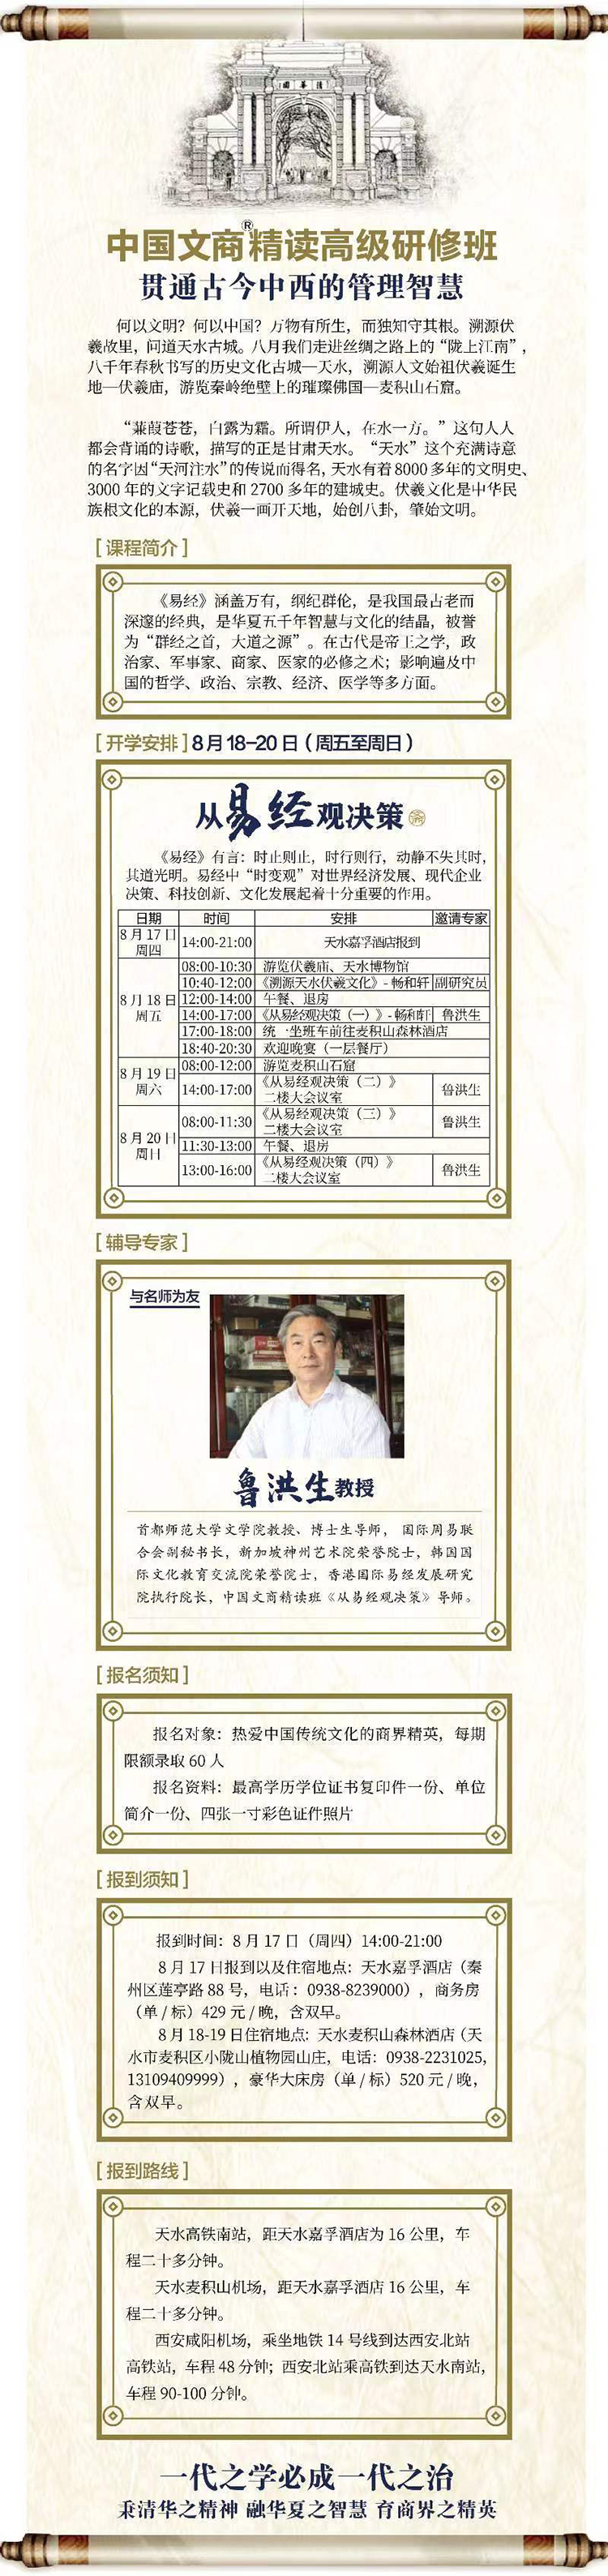 清華園
中国文商®精读高级研修班
贯通古今中西的管理智慧
何以文明？何以中国？万物有所生，而独知守其根。溯源伏
羲故里，问道天水古城。八月我们走进丝绸之路上的“陇上江南”，
八千年春秋书写的历史文化古城—天水，溯源人文始祖伏羲诞生
地—伏羲庙，游览秦岭绝壁上的璀璨佛国—麦积山石窟。
“蒹葭苍苍，白露为霜。所谓伊人，在水一方。”这句人人
都会背诵的诗歌，描写的正是甘肃天水。“天水”这个充满诗意
的名字因“天河注水”的传说而得名，天水有着8000多年的文明史、
3000年的文字记载史和2700多年的建城史。伏羲文化是中华民
族根文化的本源，伏羲一画开天地，始创八卦，肇始文明。
[课程简介]
《易经》涵盖万有，纲纪群伦，是我国最古老而
深邃的经典，是华夏五千年智慧与文化的结晶，被誉
为“群经之首，大道之源”。在古代是帝王之学，政
治家、军事家、商家、医家的必修之术；影响遍及中
国的哲学、政治、宗教、经济、医学等多方面。
[开学安排]8月18-20日（周五至周日）
从易经观决策
《易经》有言：时止则止，时行则行，动静不失其时，
其道光明。易经中“时变观”对世界经济发展、现代企业
决策、科技创新、文化发展起着十分重要的作用。
日期 时间 安排 邀请专家
8月17日 周四 14:00-21:00 天水嘉孚酒店报到
8月18日 周五 08:00-10:30 游览伏羲庙、天水博物馆
10:40-12:00 《溯源天水伏羲文化》- 畅和轩 副研究员
12:00-14:00 午餐、退房
14:00-17:00 《从易经观决策（一）》- 畅和轩 鲁洪生
17:00-18:00 统一坐班车前往麦积山森林酒店
18:40-20:30 欢迎晚宴（一层餐厅）
8月19日 周六 08:00-12:00 游览麦积山石窟
14:00-17:00 《从易经观决策（二）》 二楼大会议室 鲁洪生
8月20日 周日 08:00-11:30 《从易经观决策（三）》 二楼大会议室 鲁洪生
11:30-13:00 午餐、退房
13:00-16:00 《从易经观决策（四）》 二楼大会议室 鲁洪生
[辅导专家]
与名师为友
鲁洪生教授
首都师范大学文学院教授、博士生导师，国际周易联
合会副秘书长，新加坡神州艺术院荣誉院士，韩国国
际文化教育交流院荣誉院士，香港国际易经发展研究
院执行院长，中国文商精读班《从易经观决策》导师。
[报名须知]
报名对象：热爱中国传统文化的商界精英，每期
限额录取60人
报名资料：最高学历学位证书复印件一份、单位
简介一份、四张一寸彩色证件照片
[报到须知]
报到时间：8月17日（周四）14:00-21:00
8月17日报到以及住宿地点：天水嘉孚酒店（秦
州区莲亭路88号，电话：0938-8239000），商务房
（单/标）429元/晚，含双早。
8月18-19日住宿地点：天水麦积山森林酒店（天
水市麦积区小陇山植物园山庄，电话：0938-2231025,
13109409999），豪华大床房（单/标）520元/晚，
含双早。
[报到路线]
天水高铁南站，距天水嘉孚酒店为16公里，车
程二十多分钟。
天水麦积山机场，距天水嘉孚酒店16公里，车
程二十多分钟。
西安咸阳机场，乘坐地铁14号线到达西安北站
高铁站，车程48分钟；西安北站乘高铁到达天水南站，
车程90-100分钟。
一代之学必成一代之治
秉清华之精神 融华夏之智慧 育商界之精英